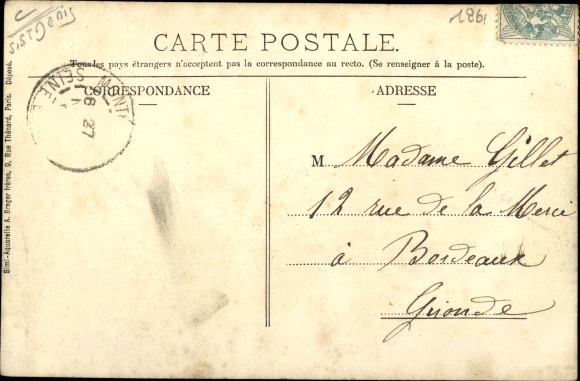 1861
CARTE POSTALE.
Tous les pays étrangers n'acceptent pas la correspondance au recto. (Se renseigner à la poste).
CORRESPONDANCE
ADRESSE
M Madame Gillet
12 rue de la Merci
à Bordeaux
Gironde
Simi-Aquarelle A. Breger frères, 9, Rue Thénard, Paris. Déposé.
SEINE
27